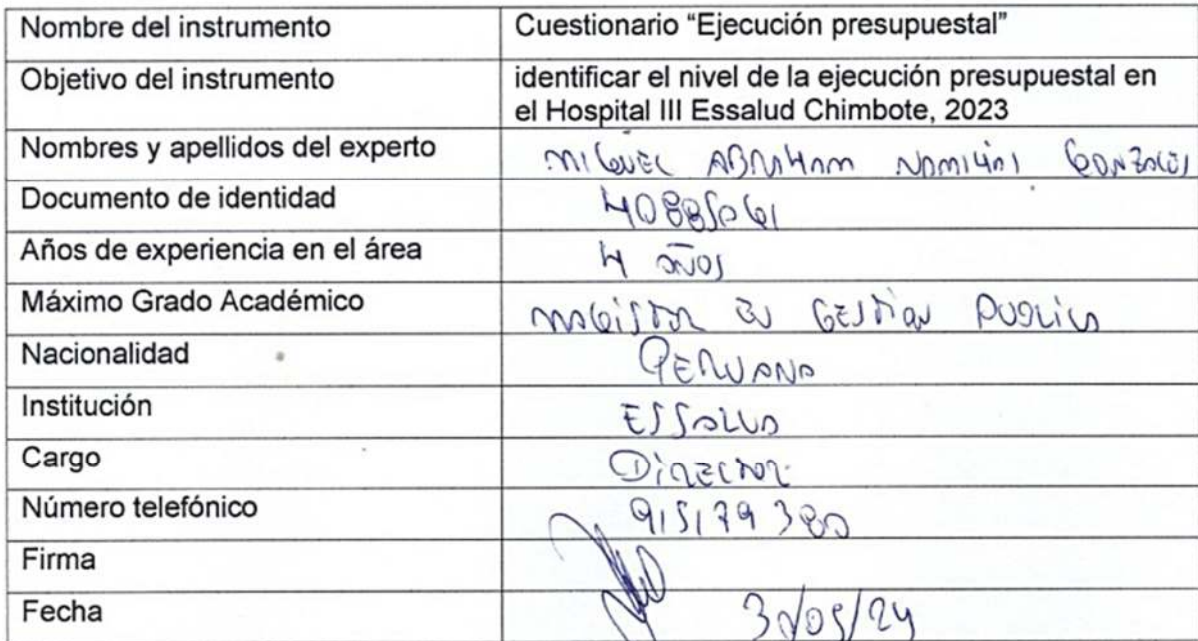 Nombre del instrumento Cuestionario “Ejecución presupuestal”
Objetivo del instrumento identificar el nivel de la ejecución presupuestal en
el Hospital III Essalud Chimbote, 2023
Nombres y apellidos del experto MIGUEL ABRAHAM GONZALES
Documento de identidad 40885061
Años de experiencia en el área 4 AÑOS
Máximo Grado Académico MAGISTER EN GESTION PUBLICA
Nacionalidad PERUANA
Institución ESSALUD
Cargo DIRECTOR
Número telefónico 915179380
Firma
Fecha 30/05/24